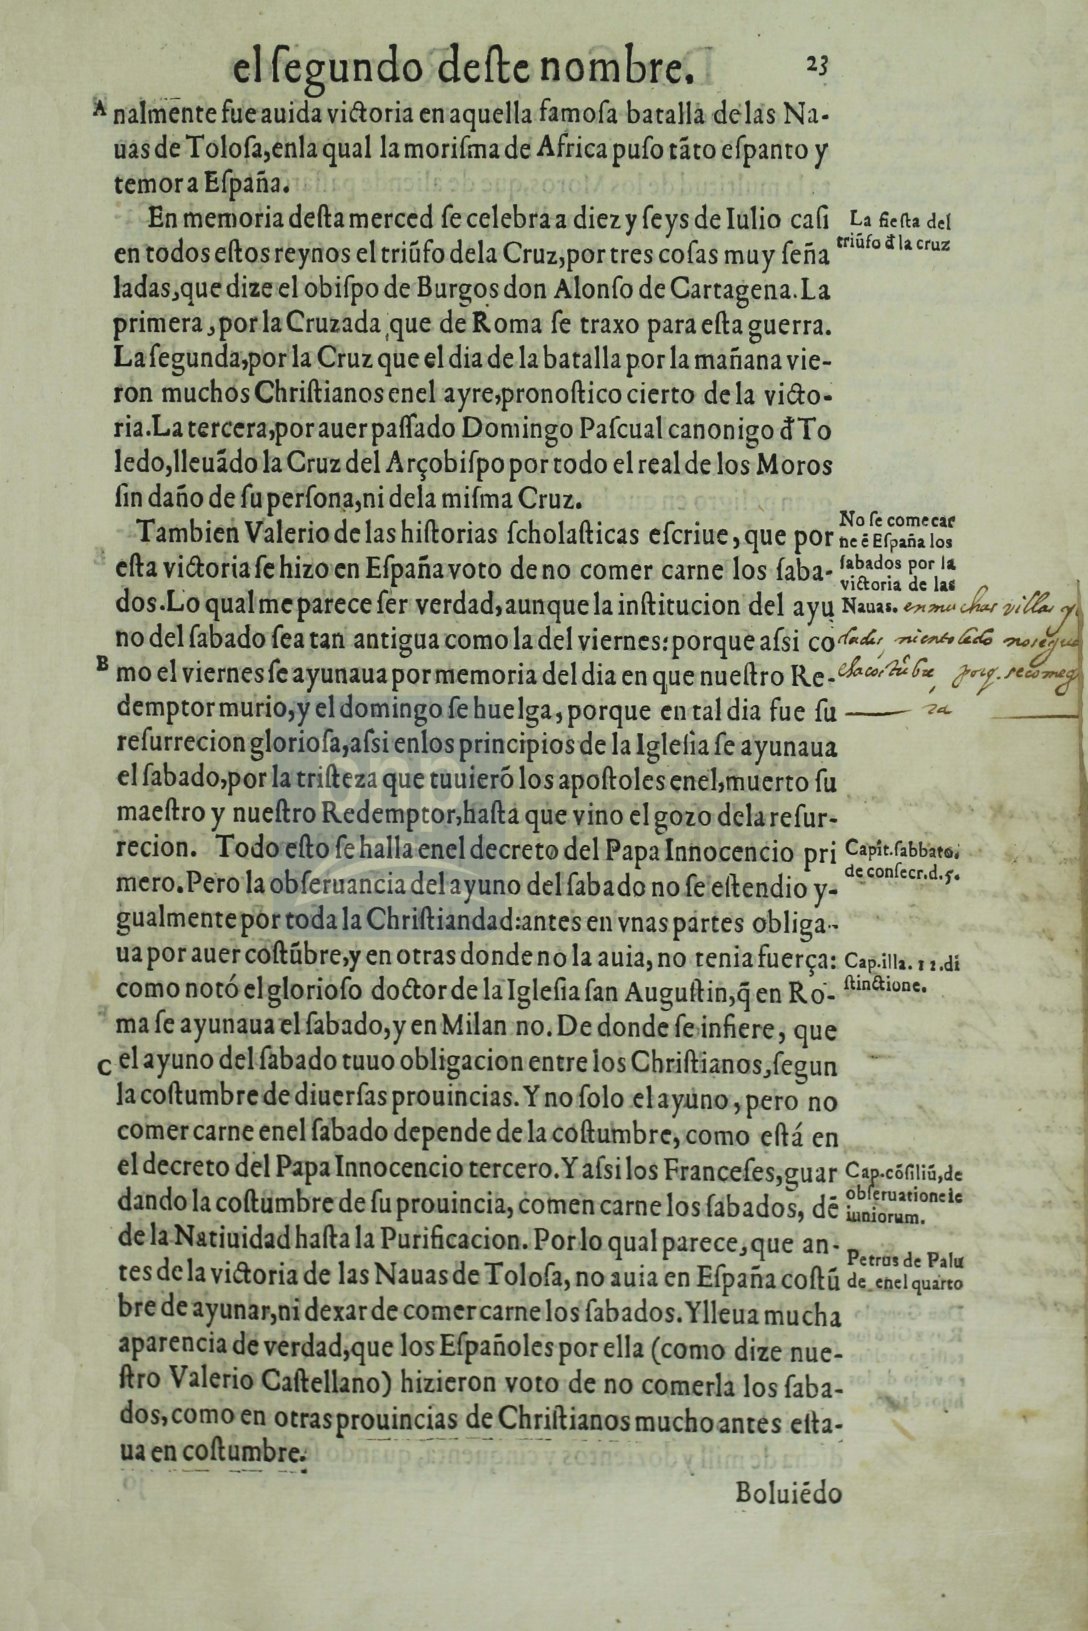 el ſegundo deſte nombre. 23
A nalmente fue auida victoria en aquella famoſa batalla de las Na-
uas de Toloſa, enla qual la moriſma de Africa puſo tãto eſpanto y
temor a Eſpaña.
En memoria deſta merced ſe celebra a diez y ſeys de Iulio caſi
La fieſta del
en todos eſtos reynos el triũfo dela Cruz, por tres coſas muy ſeña
triũfo đ la cruz
ladas, que dize el obiſpo de Burgos don Alonſo de Cartagena. La
primera, por la Cruzada que de Roma ſe traxo para eſta guerra.
La ſegunda, por la Cruz que el dia de la batalla por la mañana vie-
ron muchos Chriſtianos enel ayre, pronoſtico cierto de la victo-
ria. La tercera, por auer paſſado Domingo Paſcual canonigo đ To
ledo, lleuãdo la Cruz del Arçobiſpo por todo el real de los Moros
ſin daño de ſu perſona, ni dela miſma Cruz.
Tambien Valerio de las hiſtorias ſcholaſticas eſcriue, que por
No ſe come car
ne ẽ Eſpaña los
eſta victoria ſe hizo en Eſpaña voto de no comer carne los ſaba-
ſabados por la
victoria de las
dos. Lo qual me parece ſer verdad, aunque la inſtitucion del ayu
Nauas. en muchas villas y
no del ſabado ſea tan antigua como la del viernes: porque aſsi co
B mo el viernes ſe ayunaua por memoria del dia en que nueſtro Re-
demptor murio, y el domingo ſe huelga, porque en tal dia fue ſu
reſurrecion glorioſa, aſsi enlos principios de la Igleſia ſe ayunaua
el ſabado, por la triſteza que tuuierõ los apoſtoles enel, muerto ſu
maeſtro y nueſtro Redemptor, haſta que vino el gozo dela reſur-
recion. Todo eſto ſe halla enel decreto del Papa Innocencio pri
Capit. ſabbato.
mero. Pero la obſeruancia del ayuno del ſabado no ſe eſtendio y-
de conſecr. d. 5.
gualmente por toda la Chriſtiandad: antes en vnas partes obliga-
ua por auer coſtũbre, y en otras donde no la auia, no tenia fuerça:
Cap. illa. 12. di
como notó el glorioſo doctor de la Igleſia ſan Auguſtin, q̃ en Ro-
ſtinctione.
ma ſe ayunaua el ſabado, y en Milan no. De donde ſe infiere, que
C el ayuno del ſabado tuuo obligacion entre los Chriſtianos, ſegun
la coſtumbre de diuerſas prouincias. Y no ſolo el ayuno, pero no
comer carne enel ſabado depende de la coſtumbre, como eſtá en
el decreto del Papa Innocencio tercero. Y aſsi los Franceſes, guar
Cap. cõſiliũ, de
dando la coſtumbre de ſu prouincia, comen carne los ſabados, dẽ
obſeruatione ie
iuniorum.
de la Natiuidad haſta la Purificacion. Por lo qual parece, que an-
Petrus de Palu
tes de la victoria de las Nauas de Toloſa, no auia en Eſpaña coſtũ
de enel quarto
bre de ayunar, ni dexar de comer carne los ſabados. Y lleua mucha
aparencia de verdad, que los Eſpañoles por ella (como dize nue-
ſtro Valerio Caſtellano) hizieron voto de no comerla los ſaba-
dos, como en otras prouincias de Chriſtianos mucho antes eſta-
ua en coſtumbre.
Boluiẽdo